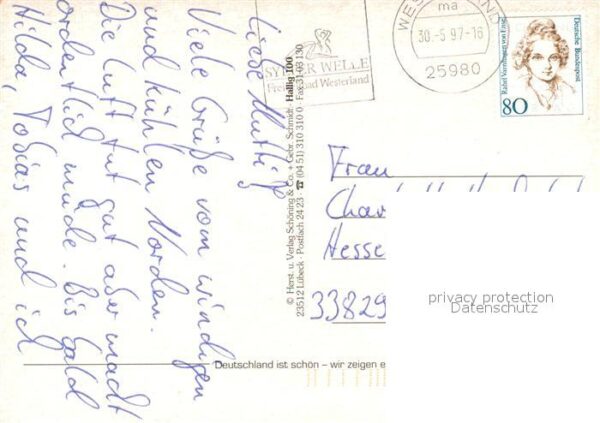 Liebe Mutti,
Viele Grüße vom windigen
und kühlen Norden.
Die Luft tut gut aber macht
ordentlich müde. Bis bald
Hilda, Tobias und ich
© Herst. u. Verlag Schöning & Co. + Gebr. Schmidt, Hallig 100
23512 Lübeck · Postfach 24 23 · ☎ (04 51) 310 310 0 · Fax 31 03 130
SYLTER WELLE
Freizeitbad Westerland
ma
30.-5 97-16
25980
Deutsche Bundespost
Rahel Varnhagen von Ense
80
Frau
Char
Hesse
33829
privacy protection
Datenschutz
Deutschland ist schön – wir zeigen e